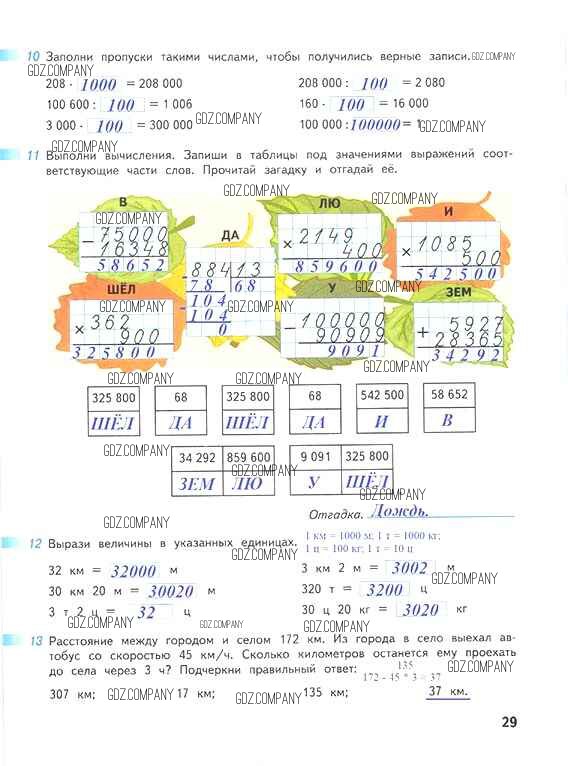 10 Заполни пропуски такими числами, чтобы получились верные записи. GDZ.COMPANY
GDZ.COMPANY
208 · 1000 = 208 000 208 000 : 100 = 2 080
100 600 : 100 = 1 006 160 · 100 = 16 000
3 000 · 100 = 300 000 GDZ.COMPANY 100 000 : 100000 = 1 GDZ.COMPANY
GDZ.COMPANY
11 Выполни вычисления. Запиши в таблицы под значениями выражений соот-
ветствующие части слов. Прочитай загадку и отгадай её.
GDZ.COMPANY
GDZ.COMPANY
В
GDZ.COMPANY
− 75000
16348
58652
ДА
GDZ.COMPANY
8841 13
78 68
104
104
0
ЛЮ
× 2149
400
859600
GDZ.COMPANY
И
× 1085
500
542500
GDZ.COMPANY
ШЁЛ
GDZ.COMPANY
× 362
900
325800
GDZ.COMPANY
У
− 100000
90909
9091
GDZ.COMPANY
ЗЕМ
+ 5927
28365
34292
GDZ.COMPANY
GDZ.COMPANY GDZ.COMPANY GDZ.COMPANY
325 800 68 325 800 68 542 500 58 652
ШЁЛ ДА ШЁЛ ДА И В
GDZ.COMPANY GDZ.COMPANY
34 292 859 600 9 091 325 800
ЗЕМ ЛЮ У ШЁЛ
GDZ.COMPANY
Отгадка. Дождь.
GDZ.COMPANY
1 км = 1000 м; 1 т = 1000 кг;
12 Вырази величины в указанных единицах.
1 ц = 100 кг; 1 т = 10 ц
GDZ.COMPANY
32 км = 32000 м 3 км 2 м = 3002 м
GDZ.COMPANY
30 км 20 м = 30020 м 320 т = 3200 ц
3 т 2 ц = 32 ц 30 ц 20 кг = 3020 кг
GDZ.COMPANY GDZ.COMPANY GDZ.COMPANY
13 Расстояние между городом и селом 172 км. Из города в село выехал ав-
тобус со скоростью 45 км/ч. Сколько километров останется ему проехать
до села через 3 ч? Подчеркни правильный ответ: 135 GDZ.COMPANY
172 - 45 * 3 = 37
307 км; GDZ.COMPANY 17 км; GDZ.COMPANY 135 км; 37 км.
GDZ.COMPANY
29